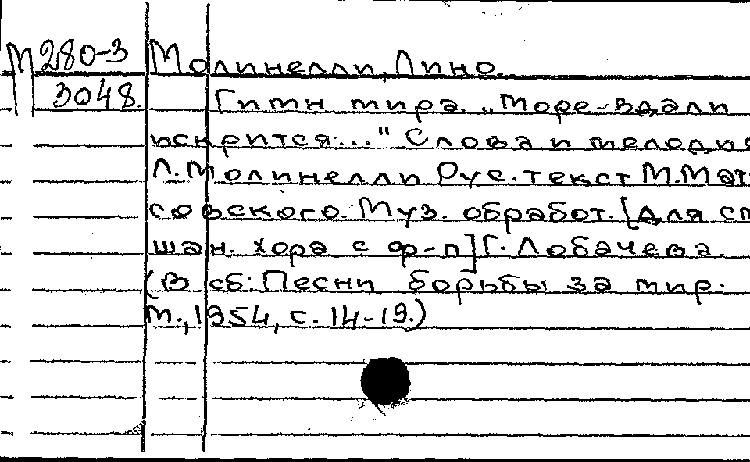 М 280-3 Молинелли, Лино.
3048. Гимн мира. „Море вдали
искрится..." Слова и мелодия
Л. Молинелли Рус. текст М. Мат
совского. Муз. обработ. [для см
шан. хора с ф-п] Г. Лобачева.
(В сб: Песни борьбы за мир.
М., 1954, с. 14-19.)